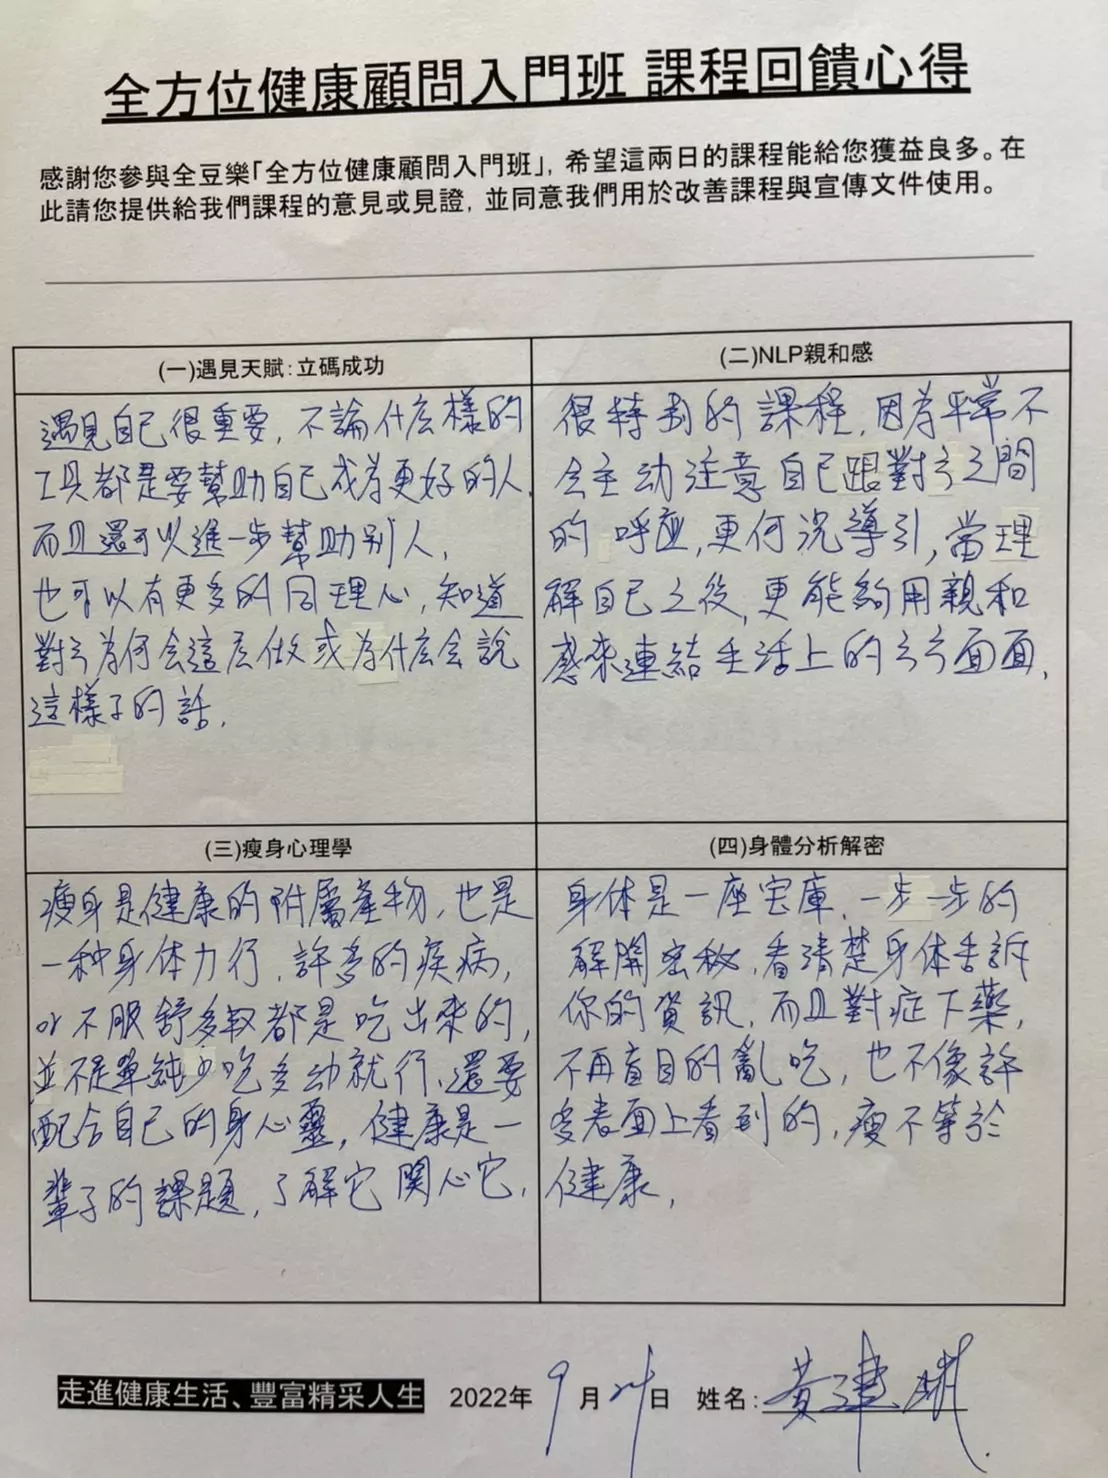 全方位健康顧問入門班 課程回饋心得
感謝您參與全豆樂「全方位健康顧問入門班」，希望這兩日的課程能給您獲益良多。在
此請您提供給我們課程的意見或見證，並同意我們用於改善課程與宣傳文件使用。
(一)遇見天賦：立碼成功
遇見自己很重要，不論什么樣的
工具都是要幫助自己成為更好的人，
而且還可以進一步幫助別人，
也可以有更多的同理心，知道
對方為何会這么做或為什么会說
這樣子的話，
(二)NLP親和感
很特別的課程，因為平常不
会主动注意自己跟對方之間
的呼应，更何況導引，當理
解自己之後，更能夠用親和
感來連結生活上的方方面面，
(三)瘦身心理學
瘦身是健康的附屬產物，也是
一种身体力行，許多的疾病，
or不服舒多数都是吃出來的，
並不是單純少吃多动就行，還要
配合自己的身心靈，健康是一
輩子的課題，了解它関心它，
(四)身體分析解密
身体是一座宝庫，一步一步的
解開密秘，看清楚身体告訴
你的資訊，而且對症下藥，
不再盲目的亂吃，也不像許
多表面上看到的，瘦不等於
健康，
走進健康生活、豐富精采人生 2022年 9月24日 姓名：黃建